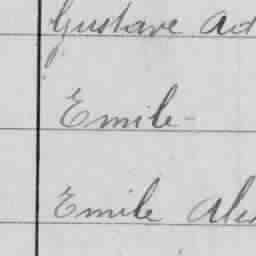 Gustave Ad
Emile-
Emile Alex